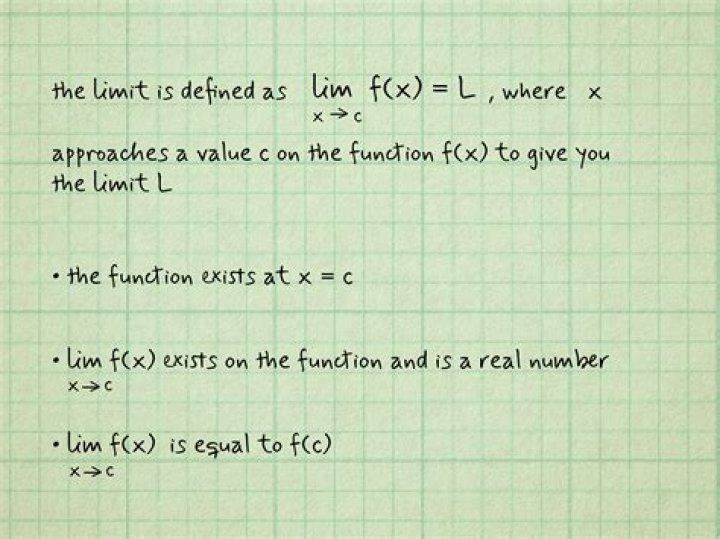 the limit is defined as lim f(x) = L , where x
x → c
approaches a value c on the function f(x) to give you
the limit L
• the function exists at x = c
• lim f(x) exists on the function and is a real number
x → c
• lim f(x) is equal to f(c)
x → c